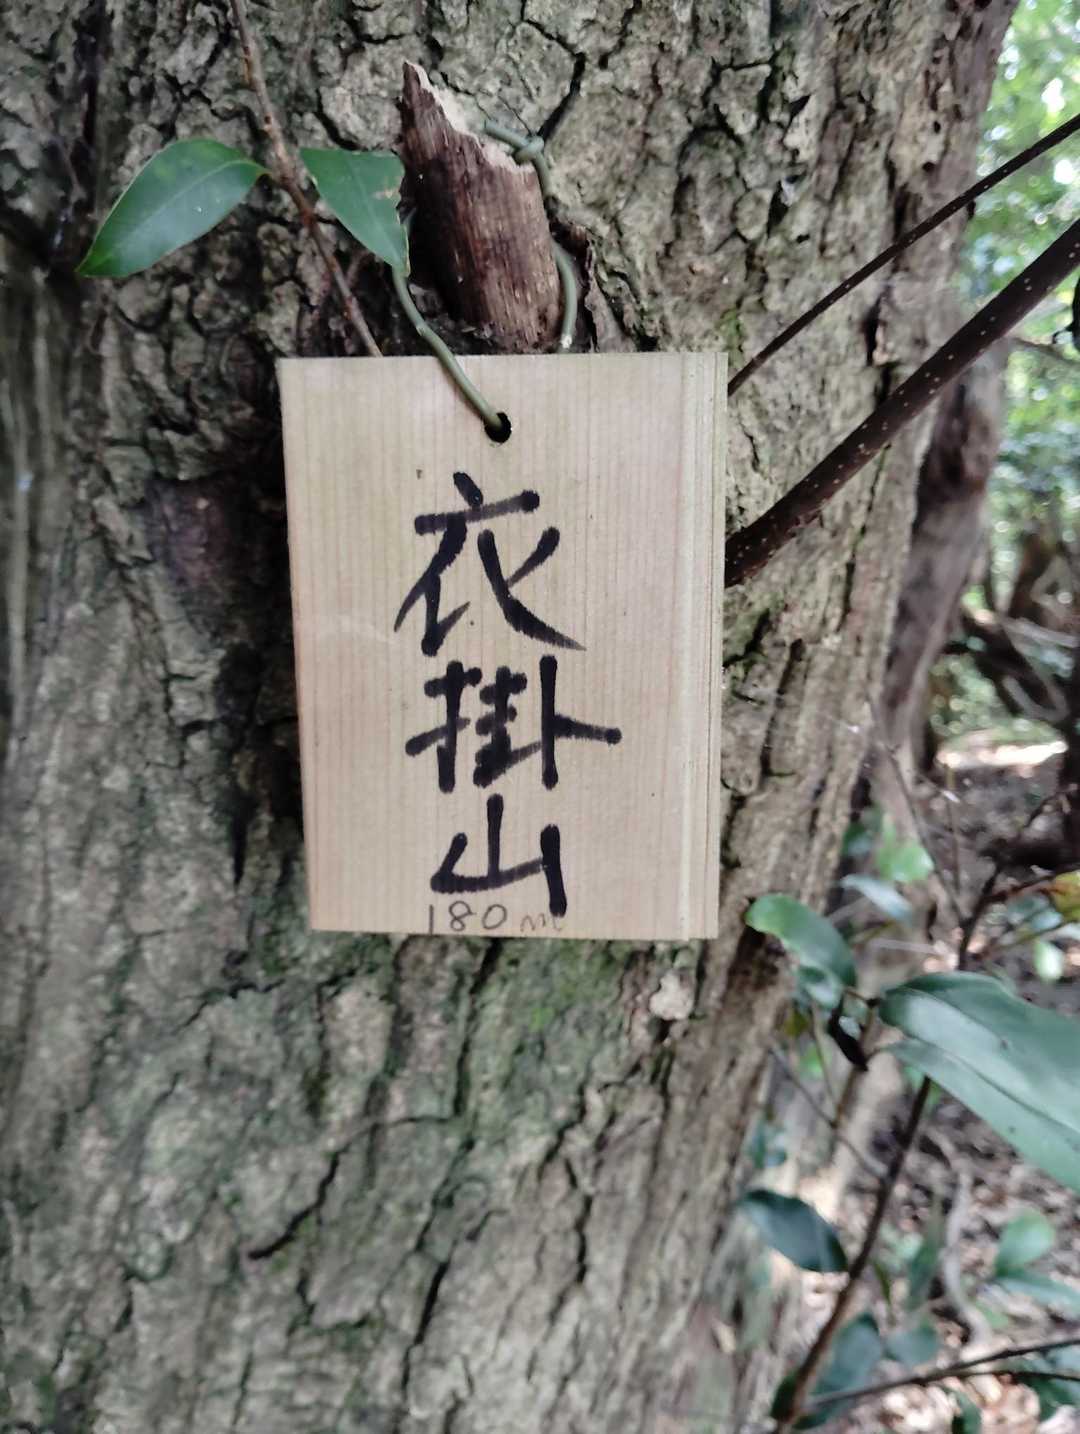 衣掛山
180m